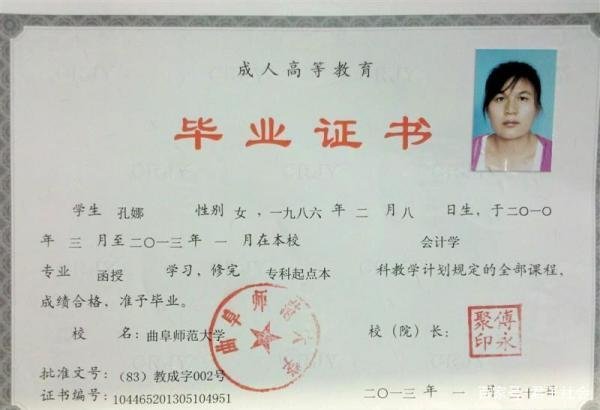 成人高等教育
毕业证书
学生 孔娜 性别 女，一九八六 年 二 月 八 日生，于二〇一〇
年 三 月至二〇一三年 一 月在本校 会计学
专业 函授 学习，修完 专科起点本 科教学计划规定的全部课程，
成绩合格，准予毕业。
校 名：曲阜师范大学 校（院）长：
曲阜师范大学
傅永聚印
批准文号：（83）教成字002号
证书编号：104465201305104951 二〇一三年 一 月 十日